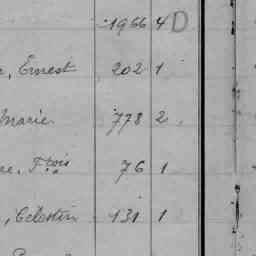 1966 4 D
, Ernest 202 1
Marie 778 2
e, Frois 76 1
, Célestin 131 1